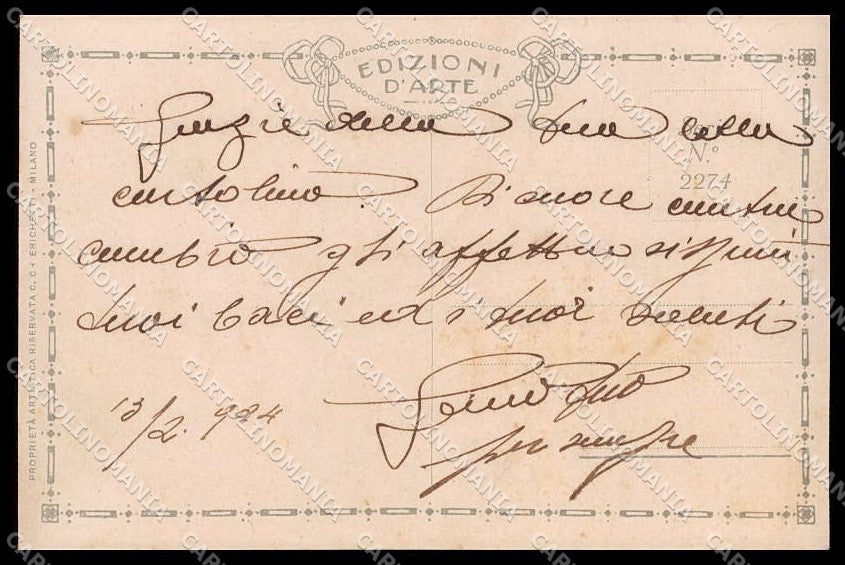 EDIZIONI
D'ARTE
Grazie della tua bella
cartolina. Di cuore
cambio gli affettuosissimi
tuoi baci ed i tuoi saluti
tuo
per sempre
13/2. 924
N.º
2274
PROPRIETÀ ARTISTICA RISERVATA C. C † ERICHETTI - MILANO
CARTOLINOMANIA